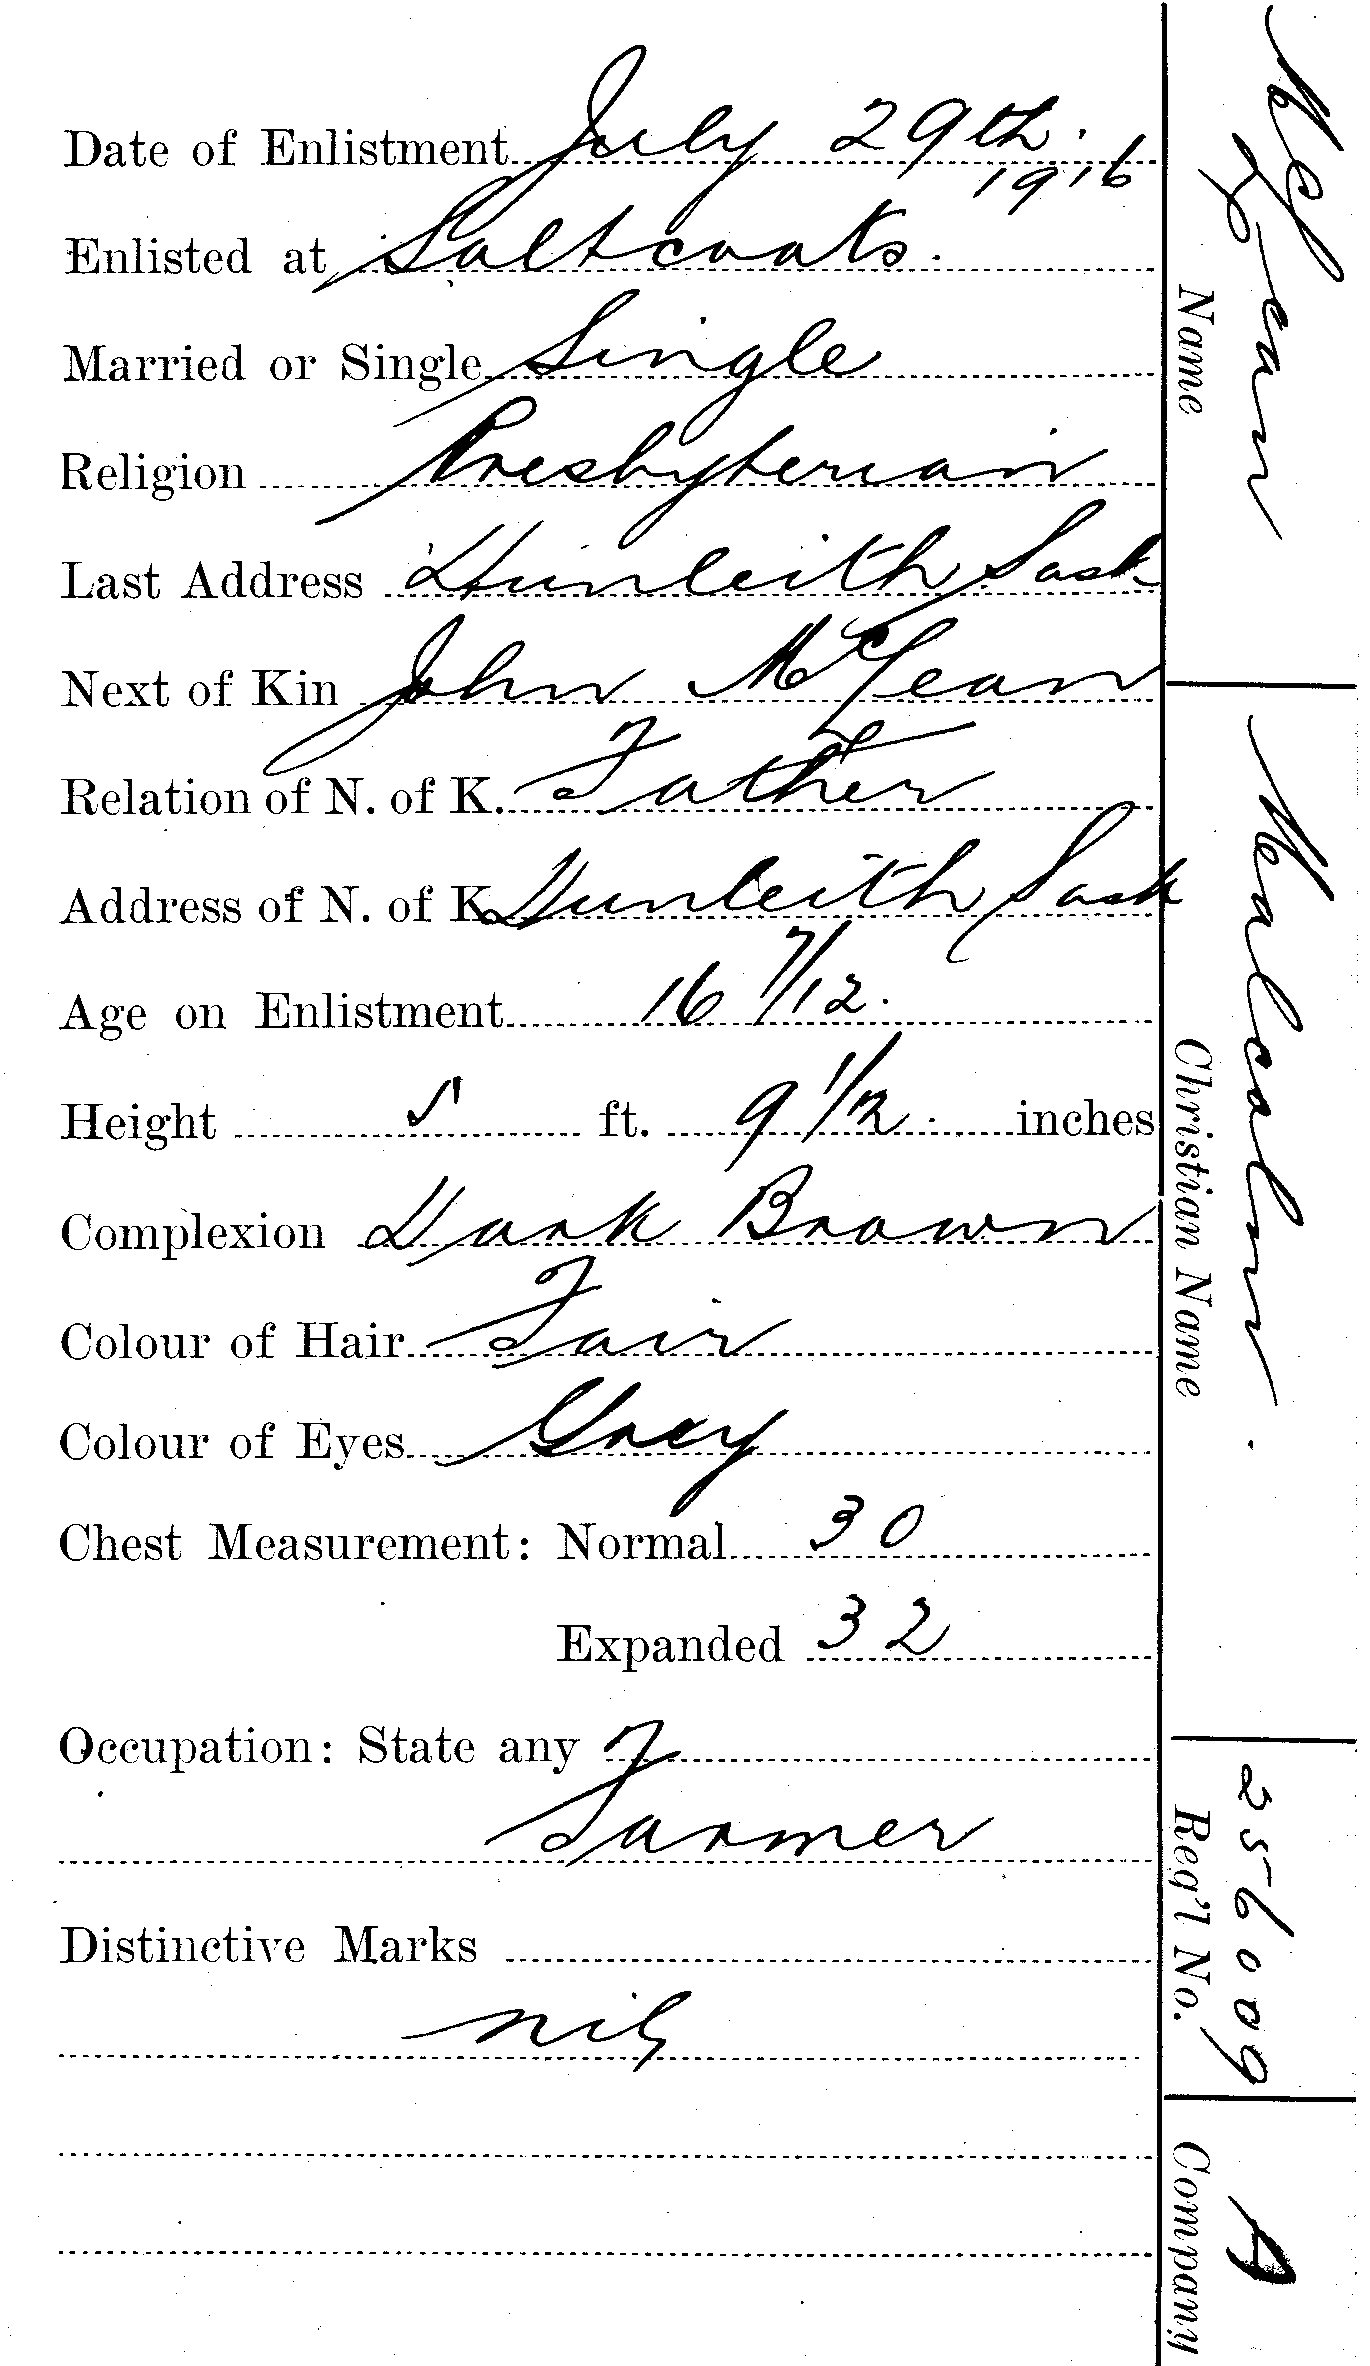 Date of Enlistment July 29th. 1916
Enlisted at Saltcoats.
Married or Single Single
Religion Presbyterian
Last Address Dunleith Sask
Next of Kin John McLean
Relation of N. of K. Father
Address of N. of K. Dunleith Sask
Age on Enlistment 16 7/12.
Height 5 ft. 9 1/2 inches
Complexion Dark Brown
Colour of Hair Fair
Colour of Eyes Grey
Chest Measurement: Normal 30
Expanded 32
Occupation: State any
Farmer
Distinctive Marks
nil
McLean
Name
Malcolm
Christian Name
256009
Reg'l No.
A
Company